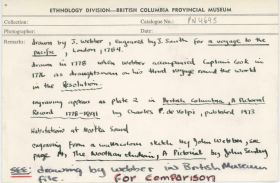 ETHNOLOGY DIVISION—BRITISH COLUMBIA PROVINCIAL MUSEUM
Collection: Catalogue No.: PN 4695
Photographer: Date:
Remarks: drawn by J. Webber, engraved by J. Smith for a voyage to the
pacific, London, 1784.
drawn in 1778 when Webber accompanied Captain Cook in
1776 as draughtsman on his third voyage round the world
in the Resolution.
engraving appears as plate 2 in British Columbia, A Pictorial
Record 1778-1891 by Charles P. de Volpi, published in 1973
at Nootka Sound
engraving from a watercolour sketch by John Webber, see
page The Nootkan A Pictorial by John Sendey
SEE: drawing by webber in British Museum
file. For comparison